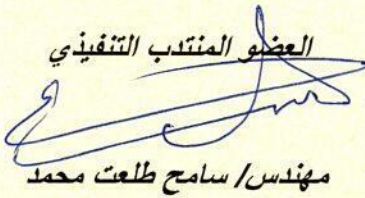 العضو المنتدب التنفيذي
مهندس/ سامح طلعت محمد